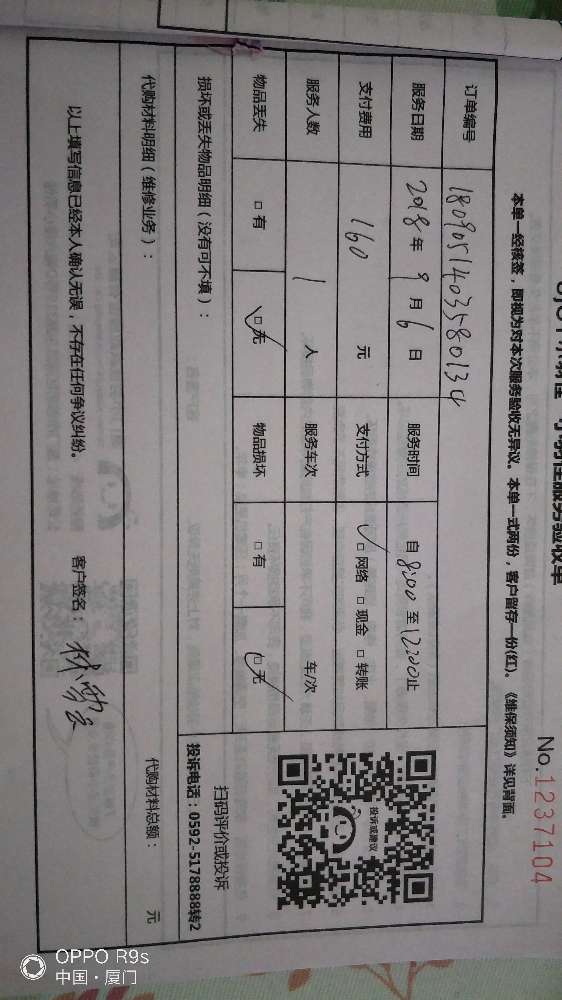 No.1237104
本单一经核签，即视为对本次服务验收无异议。本单一式两份，客户留存一份(红)。《维保须知》详见背面。
订单编号
服务日期 2018年 9月 6日 服务时间 自 8:00 至 12:00 止
支付费用 160 元 支付方式 ✓□ 网络 □ 现金 □ 转账
服务人数 1 人 服务车次 车/次
物品丢失 □ 有 □ 无 物品损坏 □ 有 □ 无
投诉或建议
扫码评价或投诉
投诉电话：0592-5178888转2
损坏或丢失物品明细（没有可不填）：
代购材料明细（维修业务）： 代购材料总额： 元
以上填写信息已经本人确认无误，不存在任何争议纠纷。 客户签名：
OPPO R9s
中国·厦门